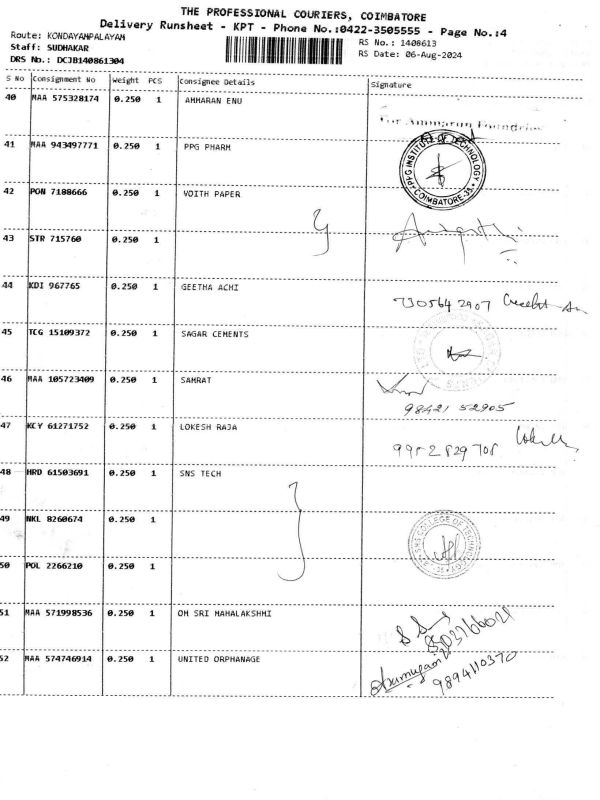 THE PROFESSIONAL COURIERS, COIMBATORE
Delivery Runsheet - KPT - Phone No.:0422-3505555 - Page No.:4
Route: KONDAYAMPALAYAM
Staff: SUDHAKAR
DRS No.: DCJB140861304
RS No.: 1408613
RS Date: 06-Aug-2024
S No Consignment No Weight PCS Consignee Details Signature
40 MAA 575328174 0.250 1 AMMARAN ENU
For Ammaran Foundries
41 MAA 943497771 0.250 1 PPG PHARM
PPG INSTITUTE OF TECHNOLOGY
COIMBATORE-35
42 PON 7188666 0.250 1 VOITH PAPER
43 STR 715760 0.250 1
44 KDI 967765 0.250 1 GEETHA ACHI
7305642907
45 TCG 15109372 0.250 1 SAGAR CEMENTS
46 MAA 105723409 0.250 1 SAMRAT
98421 52905
47 KCY 61271752 0.250 1 LOKESH RAJA
9952829708
48 HRD 61503691 0.250 1 SNS TECH
49 NKL 8260674 0.250 1
SNS COLLEGE OF TECHNOLOGY
50 POL 2266210 0.250 1
51 MAA 571998536 0.250 1 OM SRI MAHALAKSHMI
52 MAA 574746914 0.250 1 UNITED ORPHANAGE
Arumugam
9894110370